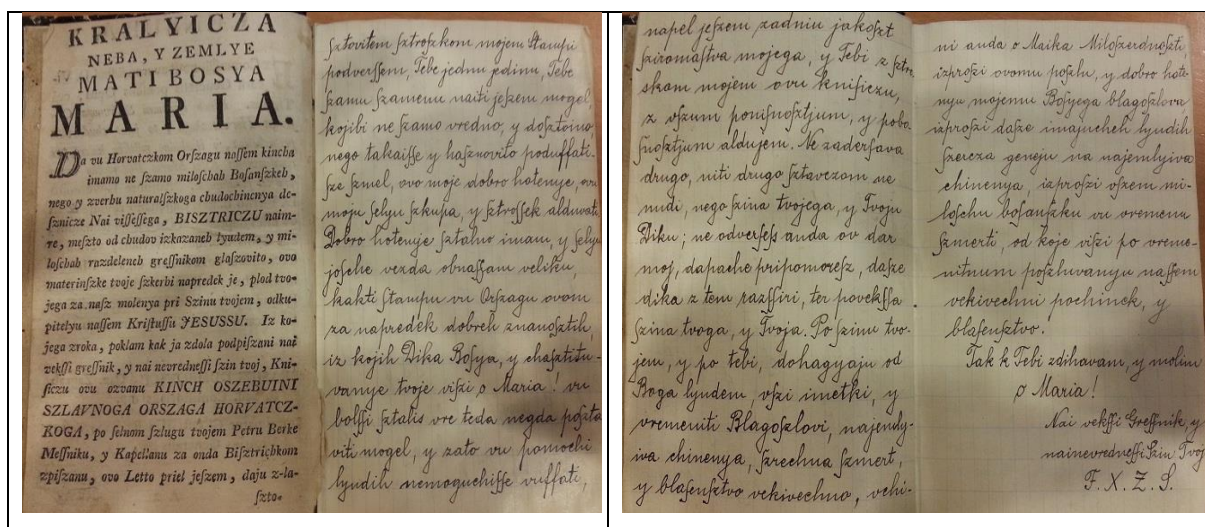 KRALYICZA
NEBA, Y ZEMLYE
MATI BOSYA
MARIA.
Da vu Horvatczkom Orſzagu naſſem kincha
imamo ne ſzamo miloſchab Boſanſzkeh,
nego y zverhu naturalſzkoga chudochinenya de-
ſznicze Nai viſſeſſega, BISZTRICZU naim-
re, meſzto od chudov izkazaneh lyudem, y mi-
loſchab razdeleneh greſſnikom glaſzovito, ovo
materinſzke tvoje ſzkerbi napredek je, plod tvo-
jega za naſz molenya pri Szinu tvojem, odku-
pitelyu naſſem Kriſtuſſu JESUSSU. Iz ko-
jega zroka, poklam kak ja zdola podpiſzani nai
vekſſi greſſnik, y nai nevredneſſi ſzin tvoj, Kni-
ſiczu ovu ozvanu KINCH OSZEBUINI
SZLAVNOGA ORSZAGA HORVATCZ-
KOGA, po ſelnom ſzlugu tvojem Petru Berke
Meſſniku, y Kapellanu za onda Biſztrichkom
zpiſzanu, ovo Letto priel jeſzem, daju z-la-
ſzto-
ſztovitem ſztroſzkom mojem Stampi
podverſſem, Tebe jednu jedinu, Tebe
ſzamu ſzamenu naiti jeſzem mogel,
kojibi ne ſzamo vredno, y doſztoino,
nego takaiſſe y haſznovito poduffati.
ſze ſzmel, ovo moje dobro hotenye, ovu
moju ſelyu ſzkupa, y ſztroſſek alduvati
Dobro hotenye ſztalno imam, y ſelyu
joſche vezda obnaſſam veliku,
kakti Stampu vu Orſzagu ovom
za napredek dobreh znanoſztih,
iz kojih Dika Boſya, y chaſztitu-
vanye tvoje viſzi o Maria! vu
bolſſi ſztalis vre teda negda poſzta
viti mogel, y zato vu pomochi
lyudih nemoguchiſſe vuffati,
napel jeſzem zadniu jakoſzt
ſziromaſtva mojega, y Tebi z ſztro
skom mojem ovu kniſiczu,
z oſzum poniſnoſztjum, y pobo
ſnoſztjum aldujem. Ne zaderſava
drugo, niti drugo ſztavczom ne
nudi, nego ſzina tvojega, y Tvoju
Diku; ne odverſeſs anda ov dar
moj, dapache pripomoreſz, daſze
dika z tem razſſiri, ter povekſſa
ſzina tvoga, y Tvoja. Po ſzinu tvo-
jem, y po tebi, dohagyaju od
Boga lyudem, vſzi imetki, y
vremeniti Blagoſzlovi, najemly-
iva chinenya, ſzrechna ſzmert,
y blaſenſztvo vekivechno, vchi-
ni anda o Maika Miloſzerdnoſzti
izproſzi ovomu poſzlu, y dobro hote
nyu mojemu Boſyega blagoſzlova
izproſzi daſze imajucheh lyudih
ſzercza geneju na najemlyiva
chinenya, izproſzi oſzem mi-
loſchu boſanſzku vu vremenu
ſzmerti, od koje viſzi po vreme-
nitnum poſzluvanyu naſſem
vekivechni pochinek, y
blaſenſztvo.
Tak k Tebi zdihavam, y molim
o Maria!
Nai vekſſi Greſſnik, y
nainevredneſſi Szin Tvoj
F. X. Z. S.